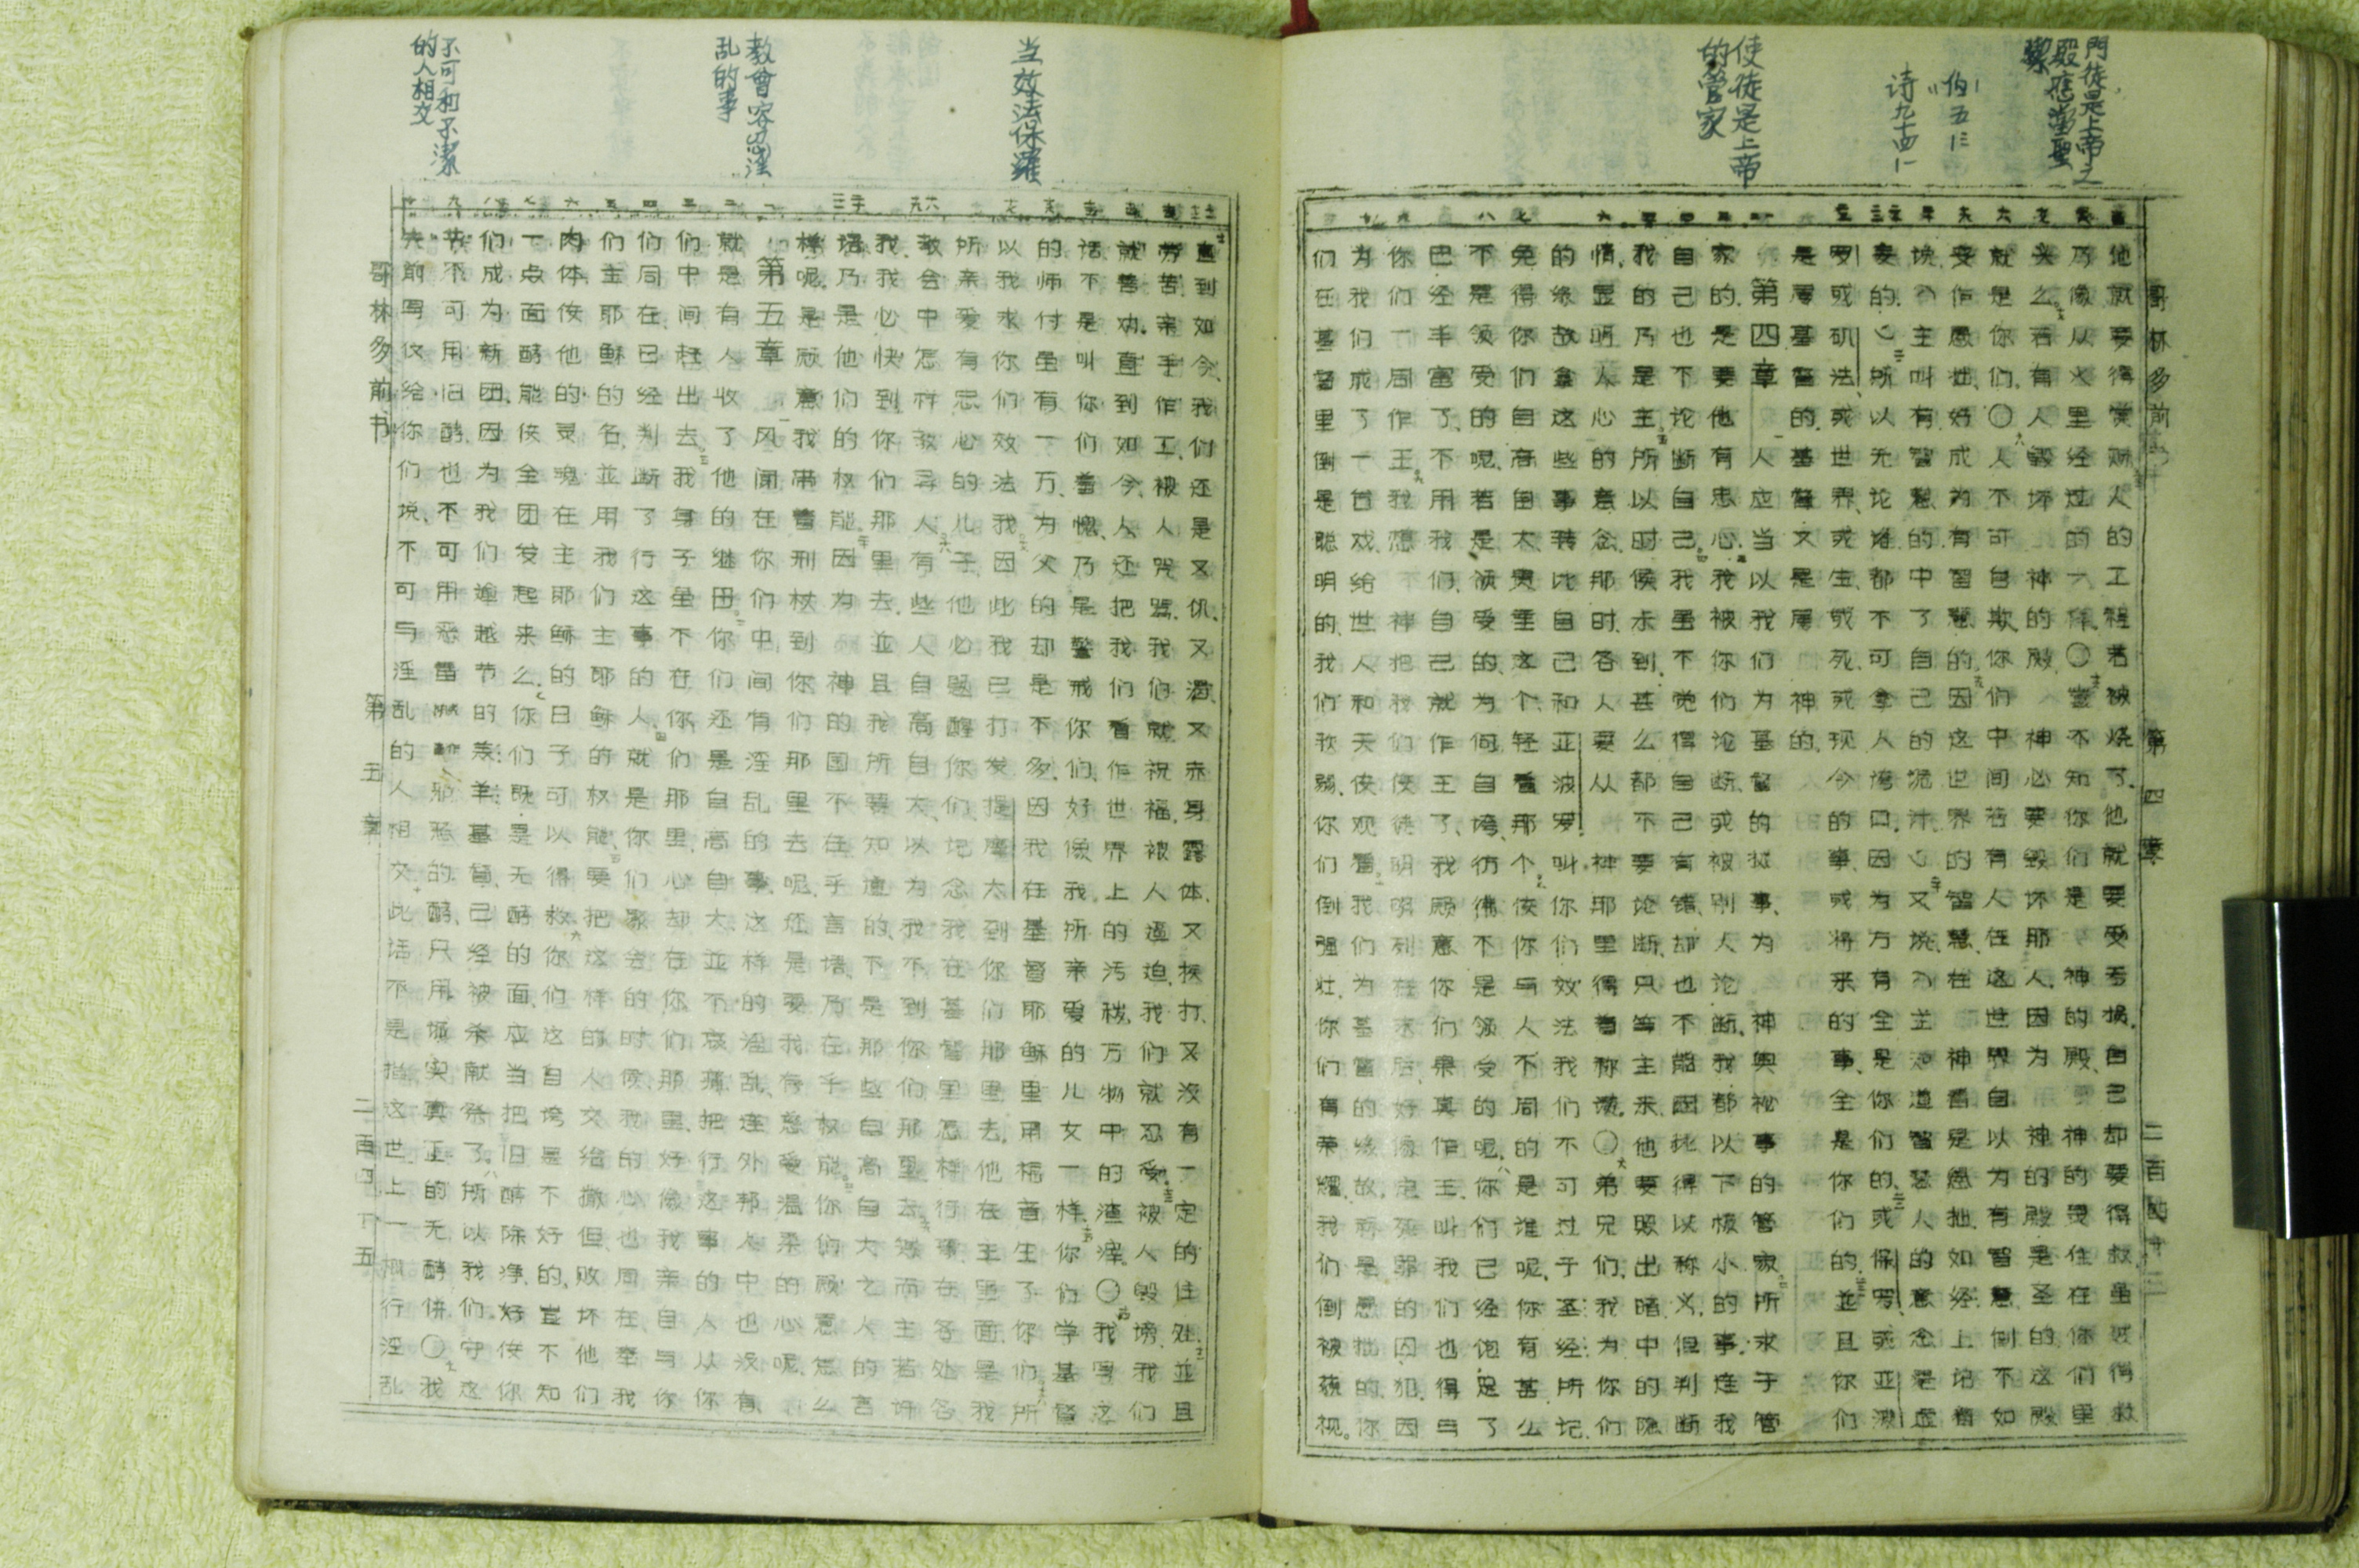 門徒是上帝之
殿應當聖
潔
伯五13
诗九十四11
使徒是上帝
的管家
哥林多前书
第四章
二百四十三
他就要得赏赐人的工程若被烧了他就要受亏损自己却要得救虽然得救
乃像从火里经过的一样〇岂不知你们是神的殿神的灵住在你们里
头么若有人毁坏神的殿神必要毁坏那人因为神的殿是圣的这殿
就是你们〇人不可自欺你们中间若有人在这世界自以为有智慧倒不如
变作愚拙好成为有智慧的因这世界的智慧在神看是愚拙如经上记着
说主叫有智慧的中了自己的诡计又说主知道智慧人的意念是虚
妄的所以无论谁都不可拿人夸口因为万有全是你们的或保罗或亚波
罗或矶法或世界或生或死或现今的事或将来的事全是你们的並且你们
是属基督的基督又是属神的
第四章 人应当以我们为基督的执事为神奥秘事的管家所求于管
家的是要他有忠心我被你们论断或被别人论断我都以下极小的事连我
自己也不论断自己我虽不觉得自己有错却也不能因此得以称义但判断
我的乃是主所以时候未到甚么都不要论断只等主来他要照出暗中的隐
情显明人心的意念那时各人要从神那里得着称赞〇弟兄们我为你们
的缘故拿这些事转比自己和亚波罗叫你们效法我们不可过于圣经所记
免得你们自高自大贵重这个轻看那个使你与人不同的是谁呢你有甚么
不是领受的呢若是领受的为何自夸仿佛不是领受的呢你们已经饱足了
巴经丰富了不用我们自己就作王了我愿意你们果真作王叫我们也得与
你们一同作王我想神把我们使徒明明列在末后好像定死罪的囚犯因
为我们成了一台戏给世人和天使观看我们为基督的缘故算是愚拙的你
们在基督里倒是聪明的我们软弱你们倒强壮你们有荣耀我们倒被藐视。
当效法保羅
教會容忍淫
乱的事
不可和不潔
的人相交
直到如今我们还是又饥又渴又赤身露体又挨打又没有一定的住处並且
劳苦亲手作工被人咒骂我们就祝福被人逼迫我们就忍受被人毁谤我们
就善劝直到如今人还把我们看作世界上的污秽万物中的渣滓〇我写这
话不是叫你们羞愧乃是警戒你们好像我所亲爱的儿女一样你们学基督
的师付虽有一万为父的却是不多因我在基督耶稣里用福音生了你们所
以我求你们效法我因此我已打发提摩太到你们那里去他在主里面是我
所亲爱有忠心的儿子他必提醒你们记念我在基督里怎样行事在各处各
教会中怎样教导人有些人自高自大以为我不到你们那里去然而主若许
我我必快到你们那里去並且我所要知道的不是那些自高自大之人的言
语乃是他们的权能因为神的国不在乎言语乃在乎权能你们愿意怎么
样呢是愿意我带着刑杖到你们那里去呢还是要我存慈爱温柔的心呢
第五章 风闻在你们中间有淫乱的事这样的淫乱连外邦人中也没有
就是有人收了他的继母你们还是自高自大並不哀痛把行这事的人从你
们中间赶出去我身子虽不在你们那里心却在你们那里好像我亲自与你
们同在已经判断了行这事的人就是你们聚会的时候我的心也同在奉我
们主耶稣的名並用我们主耶稣的权能要把这样的人交给撒但败坏他们
肉体使他的灵魂在主耶稣的日子可以得救你们这自夸是不好的岂不知
一点面酵能使全团发起来么你们既是无酵的面应当把旧酵除净好使你
们成为新团因为我们逾越节的羔羊基督已经被杀献祭了所以我们守这
节不可用旧酵也不可用恶毒邪恶的酵只用诚实真正的无酵饼〇我
先前写信给你们说不可与淫乱的人相交此话不是指这世上一概行淫乱
哥林多前书
第五章
二百四十五